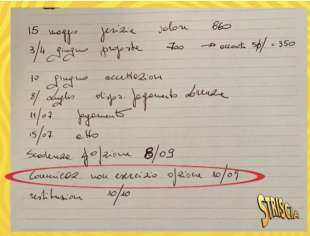 15 maggio perizia valore 860
3/4 giugno proposta 700 → sconto 50/. = 350
10 giugno accettazione
8/ luglio dispo. pagamento
11/07 pagamento
15/07 atto
Scadenza opzione 8/09
Comunicaz. non esercizio opzione 10/09
restituzione 10/10
STRISCIA